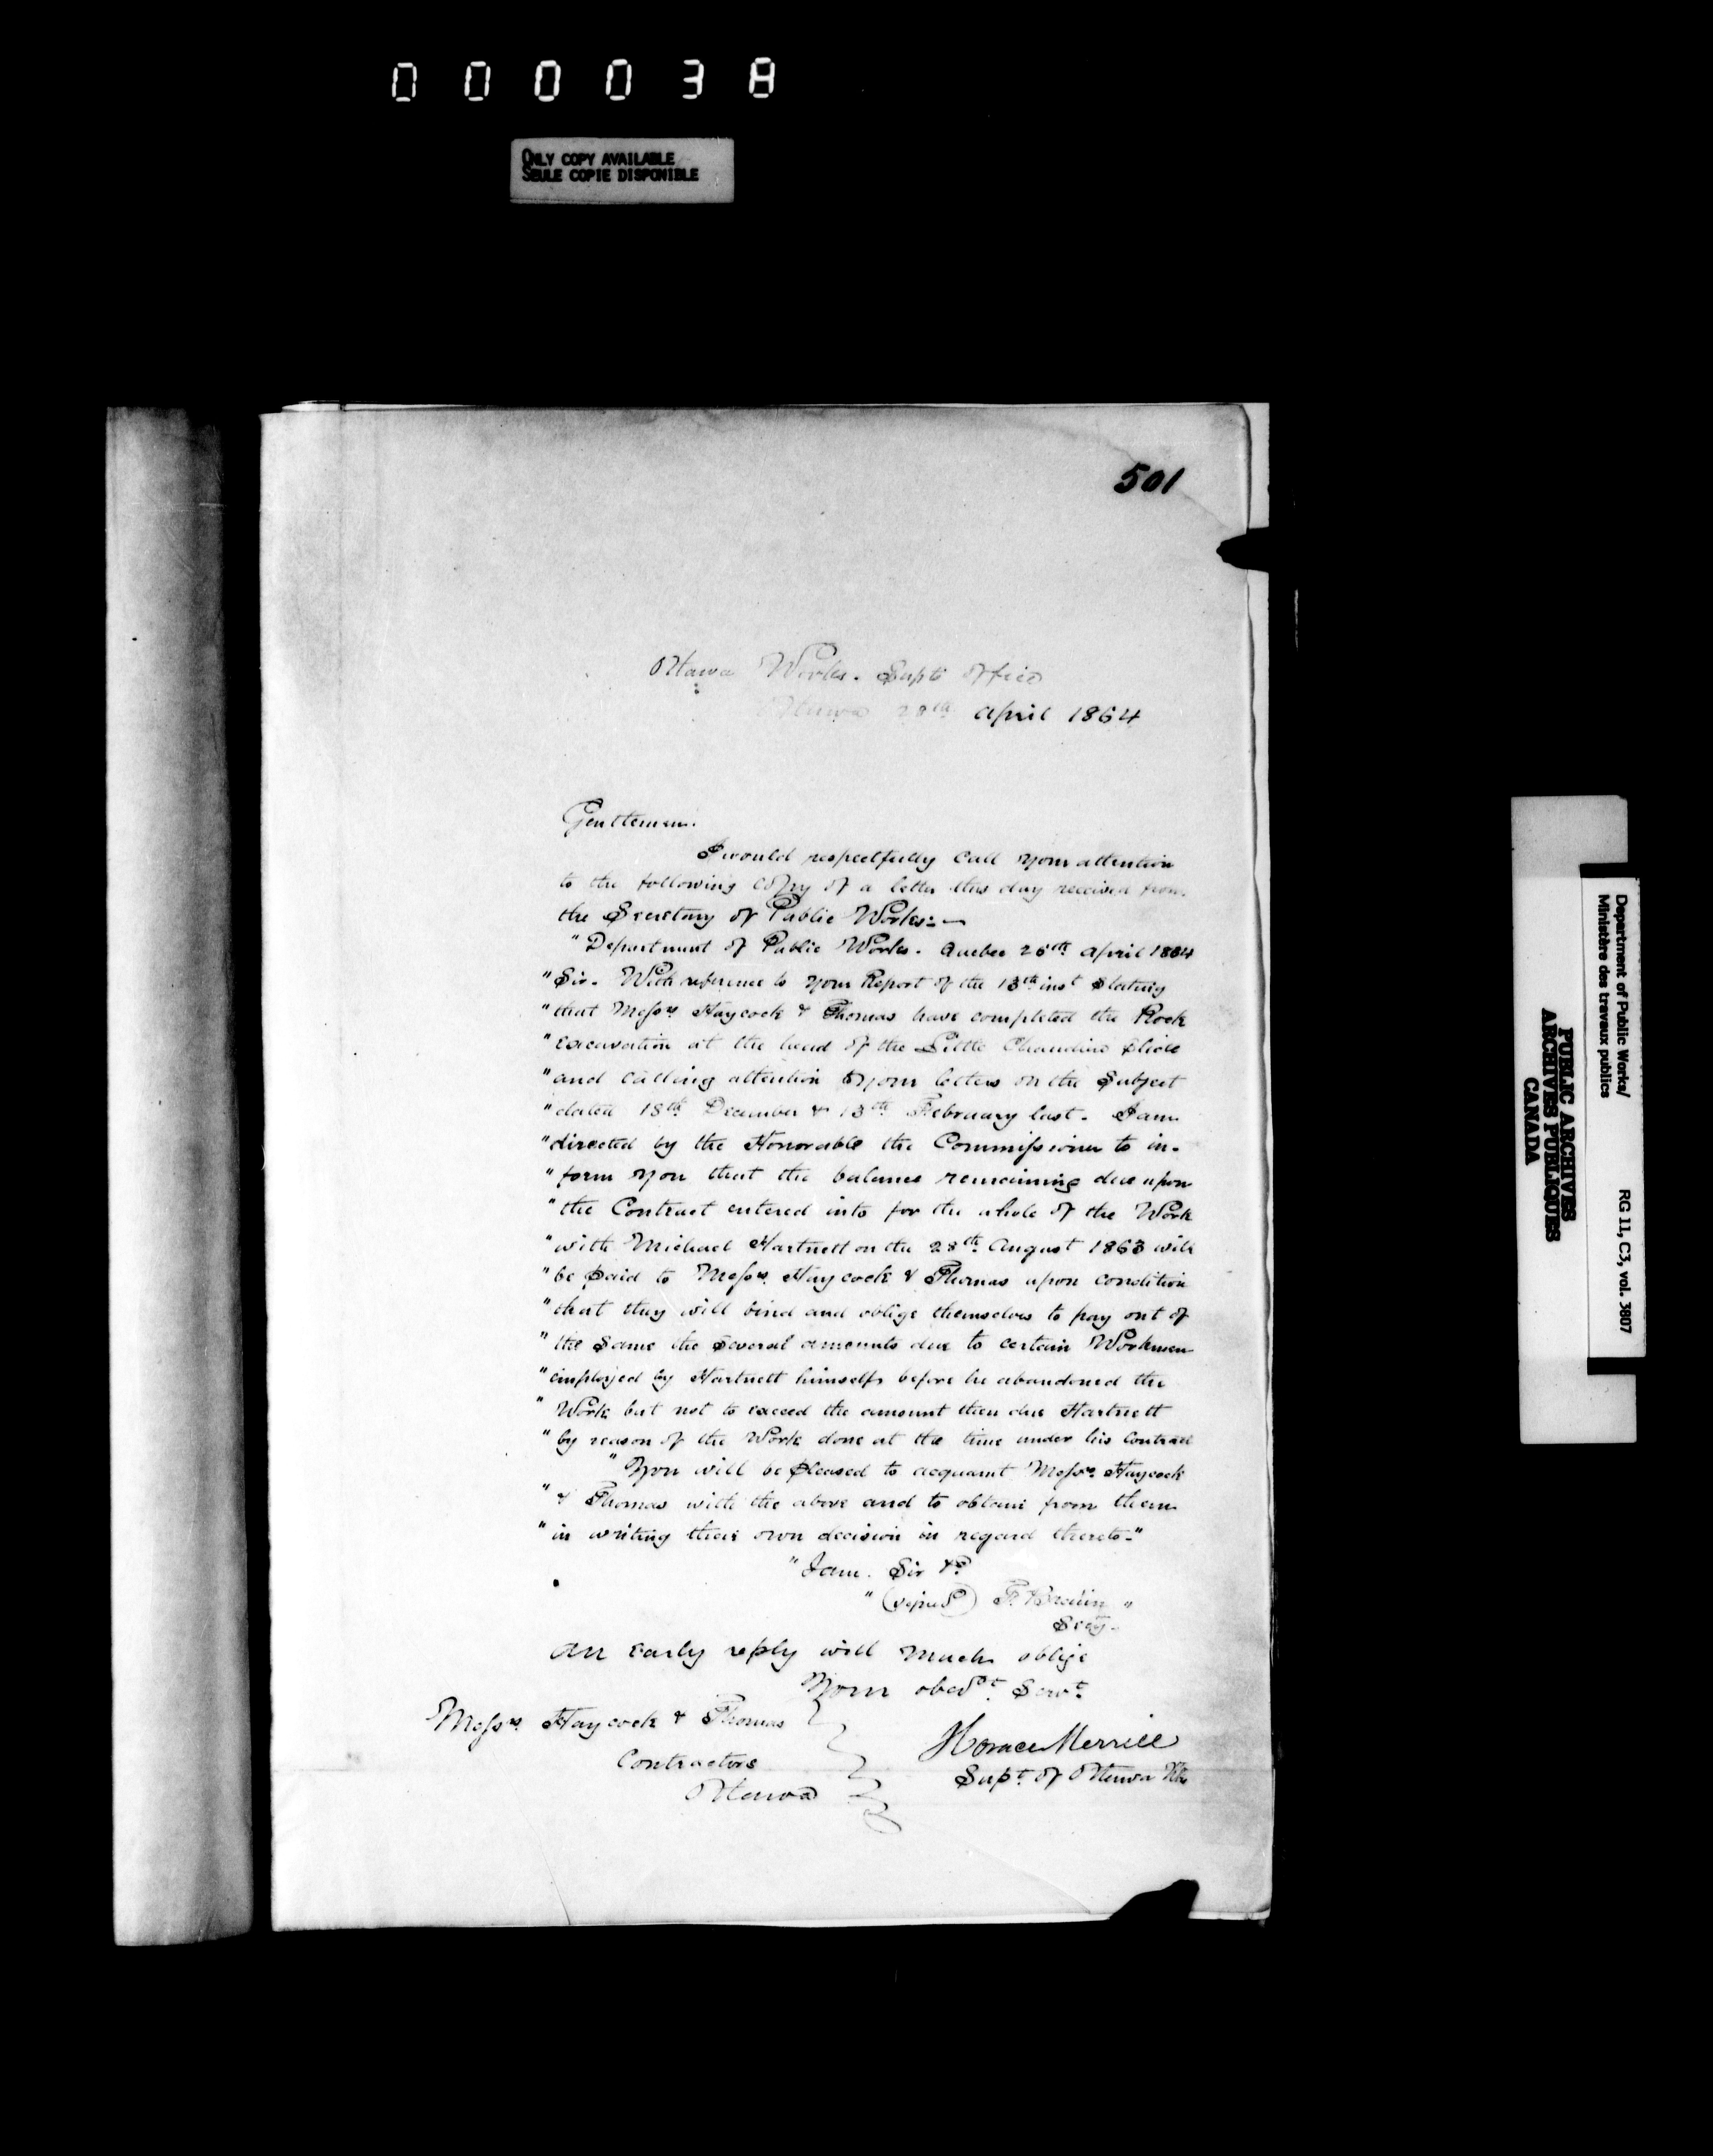 000038
ONLY COPY AVAILABLE
SEULE COPIE DISPONIBLE
501
Ottawa Works. Supts Office
Ottawa 28th April 1864
Gentlemen.
I would respectfully call your attention
to the following copy of a letter this day received from
the Secretary of Public Works:—
"Department of Public Works. Quebec 26th April 1864
"Sir. With reference to your Report of the 13th inst stating
"that Messrs Haycock & Thomas have completed the Rock
"excavation at the head of the Little Chaudiere Slide
"and calling attention to your letters on the Subject
"dated 18th December & 13th February last. I am
"directed by the Honorable the Commissioner to in-
"form you that the balance remaining due upon
"the Contract entered into for the whole of the Work
"with Michael Hartnett on the 28th August 1863 will
"be paid to Messrs Haycock & Thomas upon condition
"that they will bind and oblige themselves to pay out of
"the same the several amounts due to certain Workmen
"employed by Hartnett himself before he abandoned the
"Work but not to exceed the amount then due Hartnett
"by reason of the Work done at the time under his Contract
"You will be pleased to acquaint Messrs Haycock
"& Thomas with the above and to obtain from them
"in writing their own decision in regard thereto."
"I am. Sir &c
"(signed) F. Braün "
Secy.
An early reply will much oblige
Your obedt. Servt.
Messrs Haycock & Thomas
Contractors
Ottawa
Horace Merrill
Supt. of Ottawa Wks
Department of Public Works/
Ministère des travaux publics
RG 11, C3, vol. 3807
PUBLIC ARCHIVES
ARCHIVES PUBLIQUES
CANADA